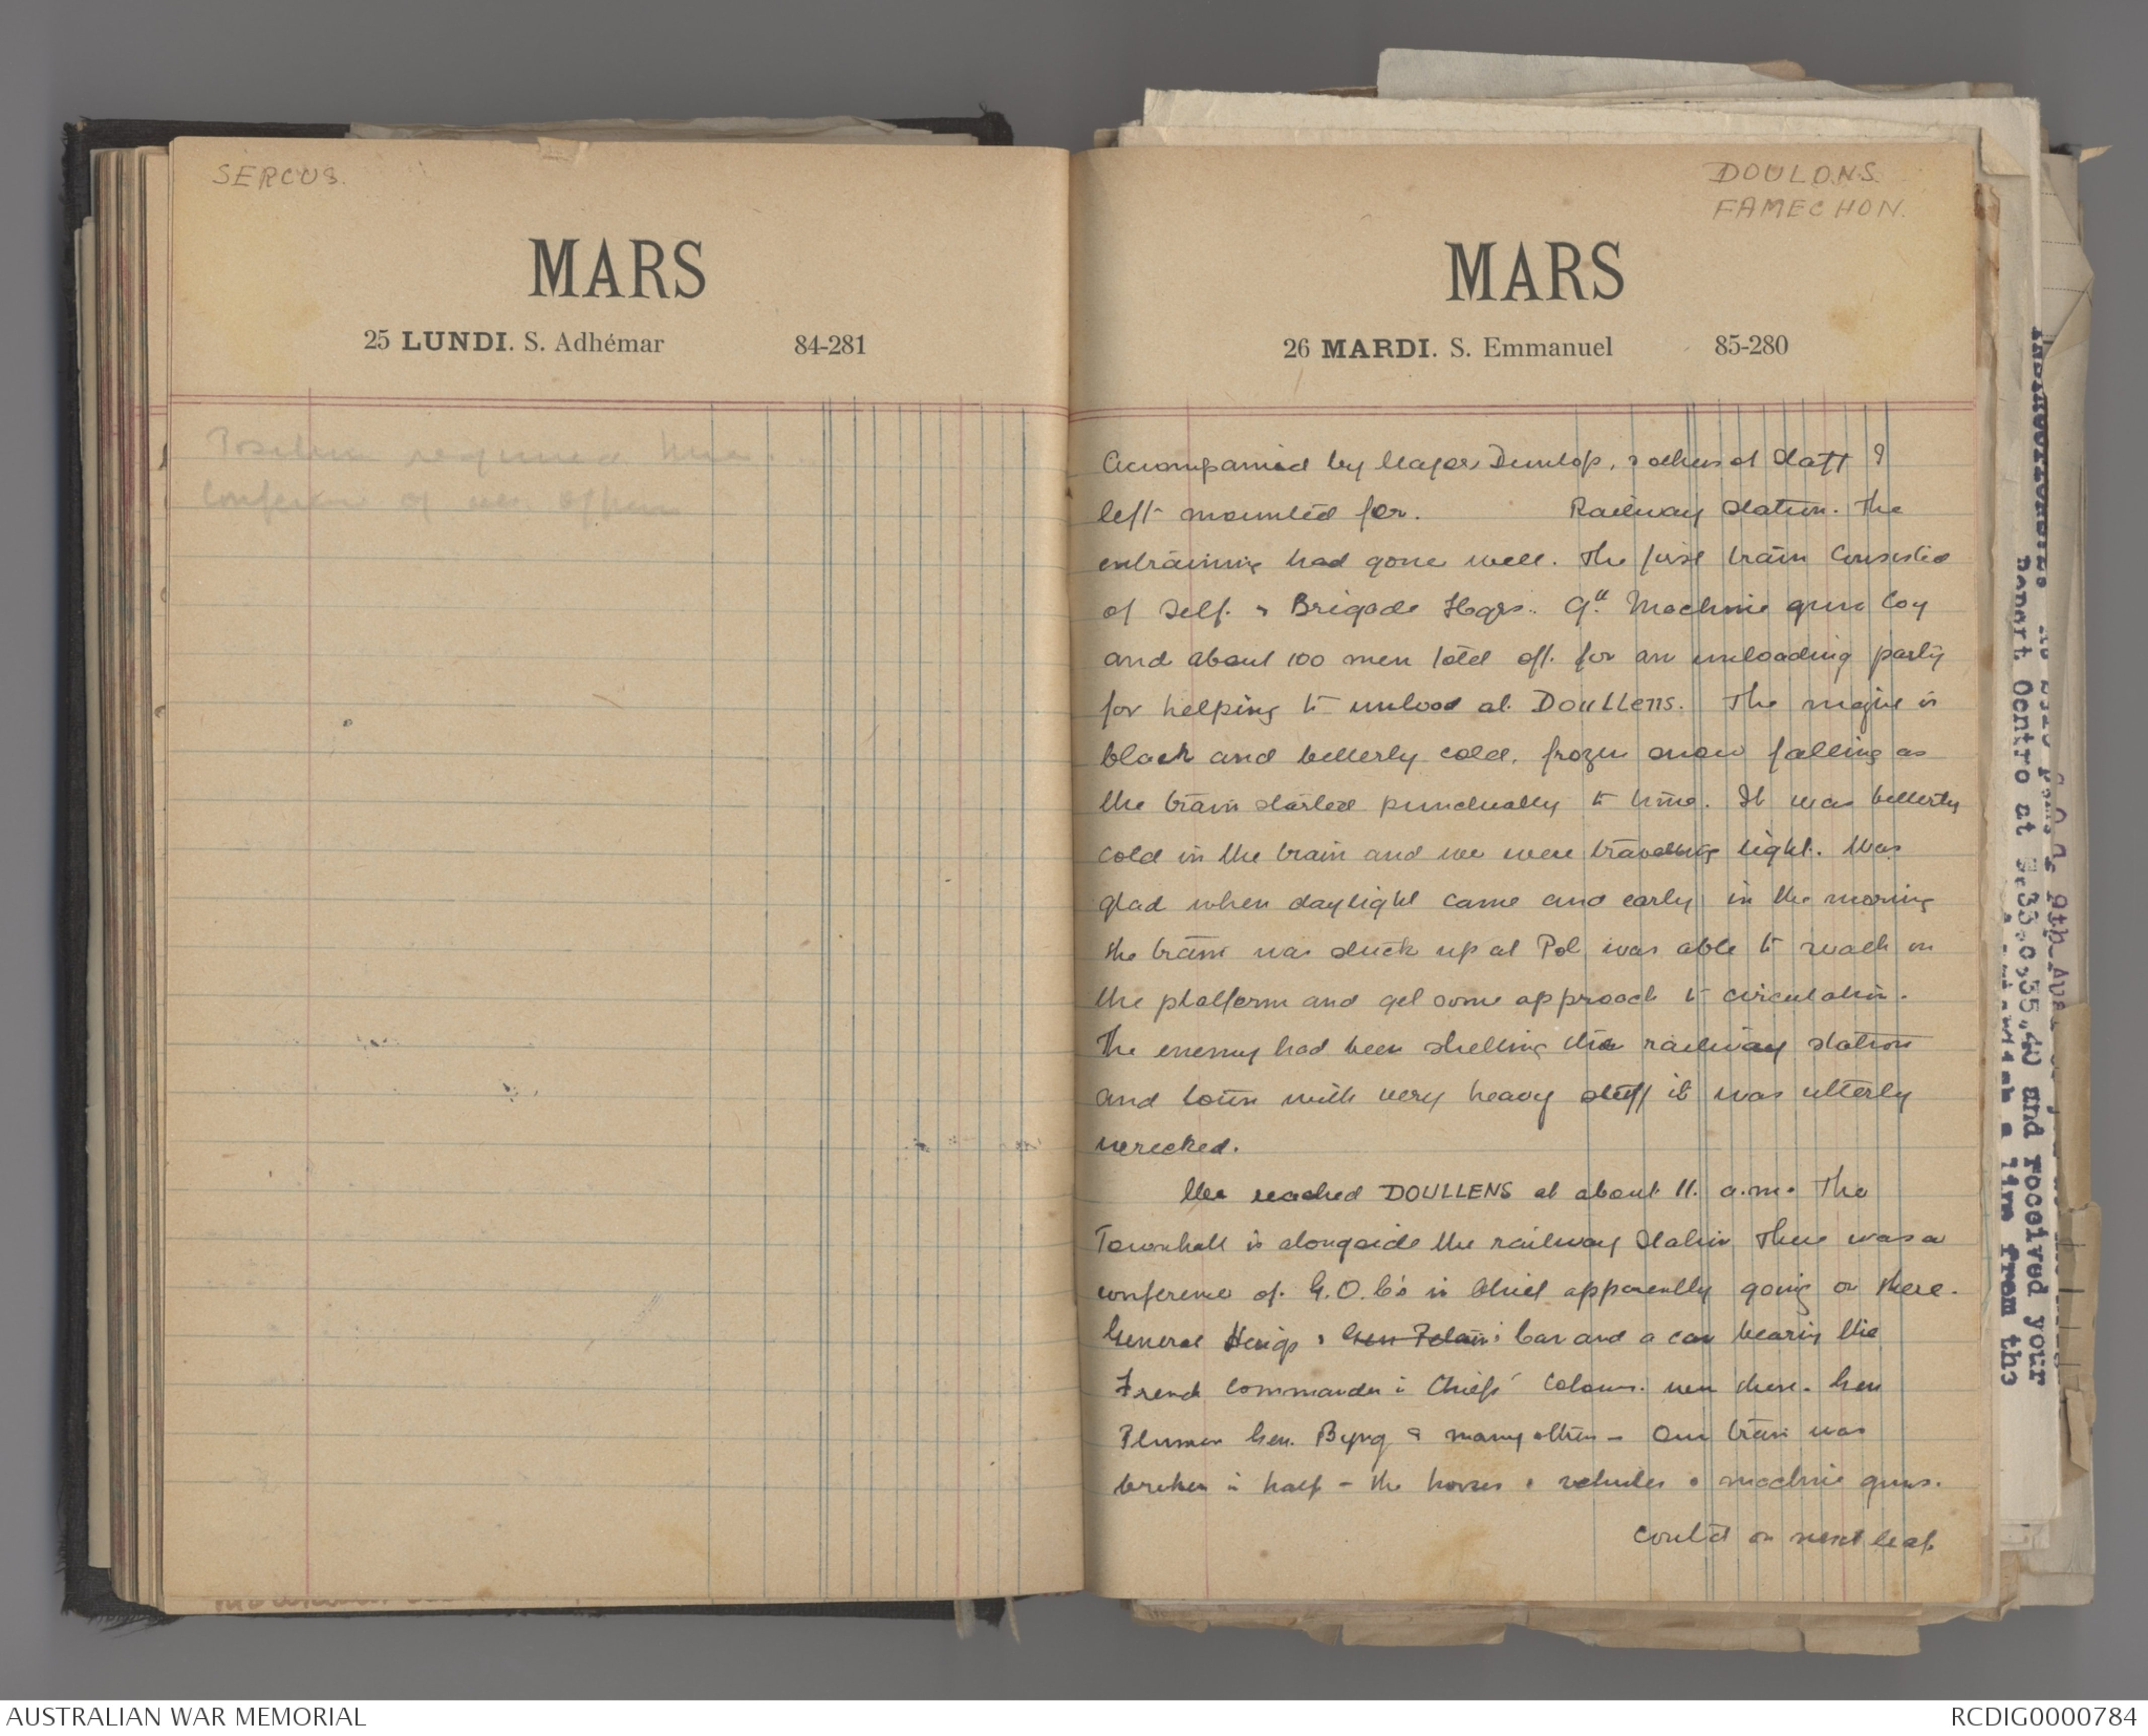 SERCUS.
MARS
25 LUNDI. S. Adhémar 84-281
Conference of
DOULONS
FAMECHON.
MARS
26 MARDI. S. Emmanuel 85-280
Accompanied by Major Dunlop, & others of Staff I
left mounted for. Railway Station. The
entraining had gone well. The first train Consisted
of Self. & Brigade Hqrs. 9th Machine gun Coy
and about 100 men told off. for an unloading party
for helping to unload at DOULLENS. The night is
black and betterly cold, frozen snow falling as
the train started punctually to time. It was betterly
cold in the train and we were travelling light. Was
glad when daylight came and early in the morning
the train was stuck up at Pol, was able to walk on
the platform and get some approach to circulation.
The enemy had been shelling this railway station
and town with very heavy stuff it was utterly
wrecked.
We reached DOULLENS at about 11. a.m. The
Townhall is alongside the railway Station There was a
conference of G.O.C's in Chief apparently going on there.
General Haigs & Gen Petain's Car and a car bearing the
French Commander in Chiefs' Colours. were there. Gen
Plumer Gen. Byng & many others - Our train was
broken in half - the horses & vehicles & machine guns.
Cont'd on next leaf
Report Centre at
and received your
from the
AUSTRALIAN WAR MEMORIAL
RCDIG0000784